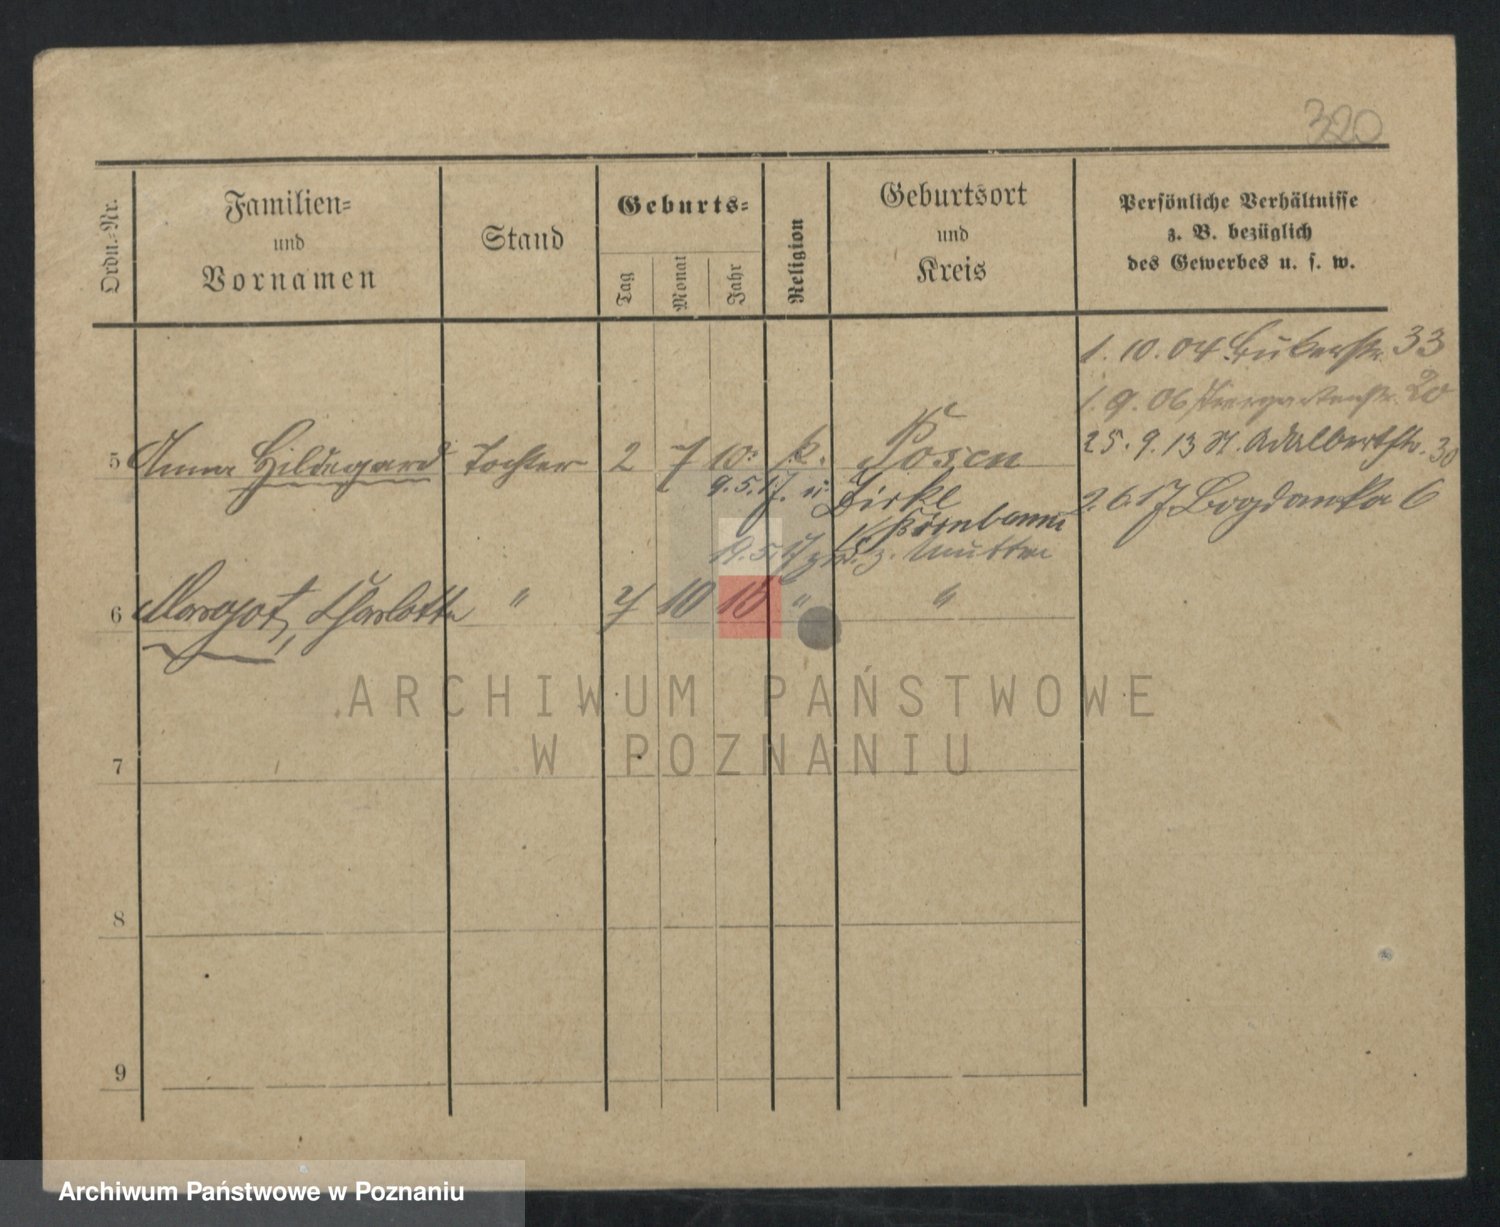 320
Ordn.-Nr.
Familien-
und
Vornamen
Stand
Geburts-
Tag
Monat
Jahr
Religion
Geburtsort
und
Kreis
Persönliche Verhältnisse
z. B. bezüglich
des Gewerbes u. s. w.
1. 10. 04 Bukerstr. 33
1. 9. 06 Tiergartenstr. 20
25. 9. 13 St. Adalbertstr. 30
2. 6. 17 Bogdanka 6
5 Anna Hildegard Tochter 2 7 10. k. Posen
9. 5. 17. n. Zirke
b. Birnbaum
19. 5. 17 z. Mutter
6 Margot, Charlotte " 7 10 10 " "
7
8
9
ARCHIWUM PAŃSTWOWE
W POZNANIU
Archiwum Państwowe w Poznaniu